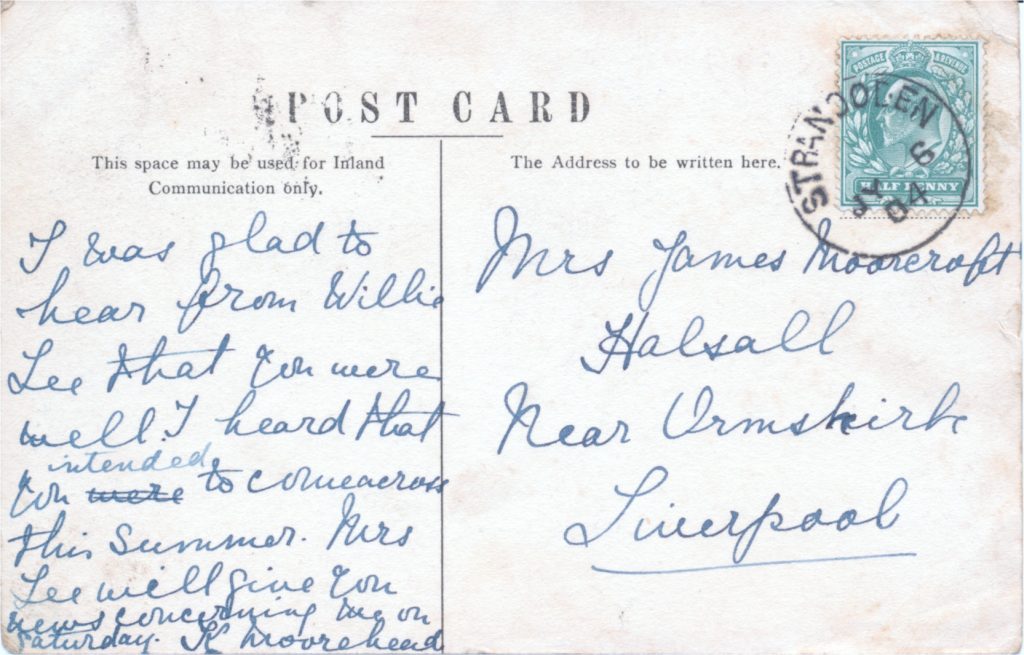 POST CARD
This space may be used for Inland
Communication only.
The Address to be written here.
POSTAGE & REVENUE
HALF PENNY
STRANOOLEN
JY 6
04
I was glad to
hear from Willie
Lee that you were
well. I heard that
intended
you were to come across
this Summer. Mrs
Lee will give you
news concerning me on
Saturday. K Moorehead
Mrs James Moorcroft
Halsall
Near Ormskirk
Liverpool